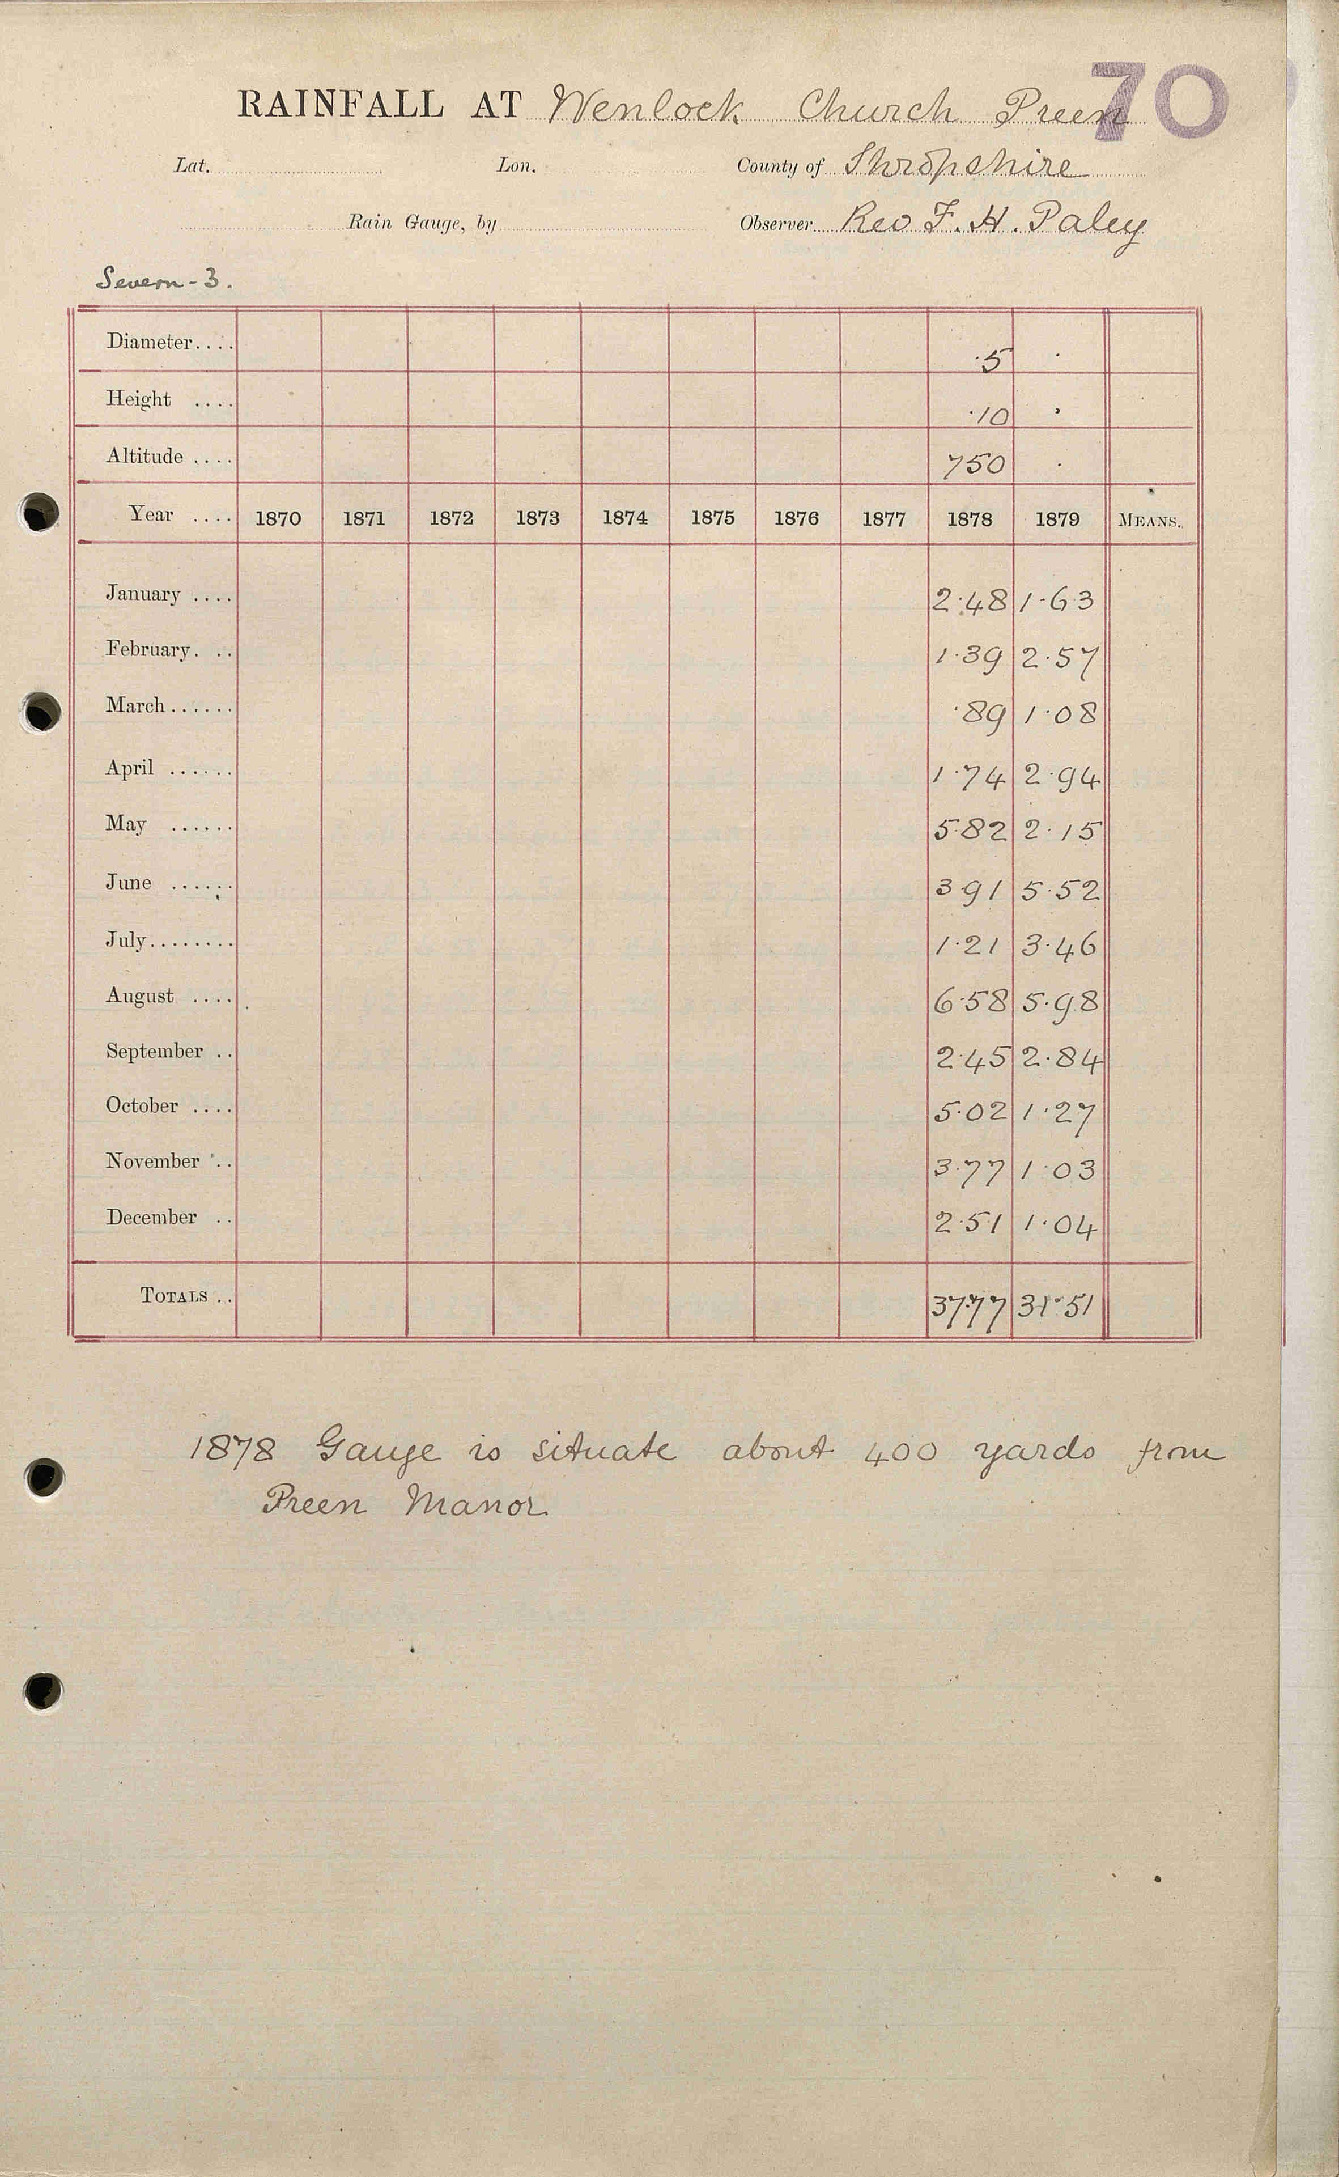 70
RAINFALL AT Wenlock Church Preen
Lat. Lon. County of Shropshire
Rain Gauge, by Observer Rev F. H. Paley
Severn - 3.
Diameter.... ·5 ·
Height .... ·10 ·
Altitude .... 750 ·
Year .... 1870 1871 1872 1873 1874 1875 1876 1877 1878 1879 MEANS.
January .... 2·48 1·63
February. .. 1·39 2·57
March...... ·89 1·08
April ...... 1·74 2·94
May ...... 5·82 2·15
June ...... 3 91 5·52
July........ 1·21 3·46
August .... 6·58 5·98
September .. 2·45 2·84
October .... 5·02 1·27
November .. 3·77 1·03
December .. 2·51 1·04
TOTALS .. 37·77 31·51
1878 Gauge is situate about 400 yards from
Preen Manor